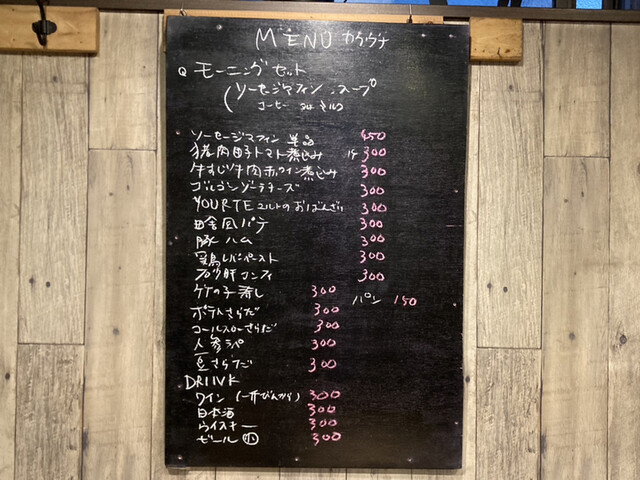 MENU カウウナ
モーニングセット
(ソーセージマフィン、スープ
コーヒー or ミルク
ソーセージマフィン 単品 450
猪肉団子トマト煮込み 1ケ 300
牛すじ牛肉赤ワイン煮込み 300
ゴルゴンゾーラチーズ 300
YOURTE ユルトのおばんざい 300
田舎風パテ 300
豚ハム 300
鶏レバーペースト 300
砂肝コンフィ 300
竹の子蒸し 300
パン 150
ポテトさらだ 300
コールスローさらだ 300
人参ラペ 300
豆さらだ 300
DRINK
ワイン (一升びんから) 300
日本酒 300
ウイスキー 300
ビール 小 300